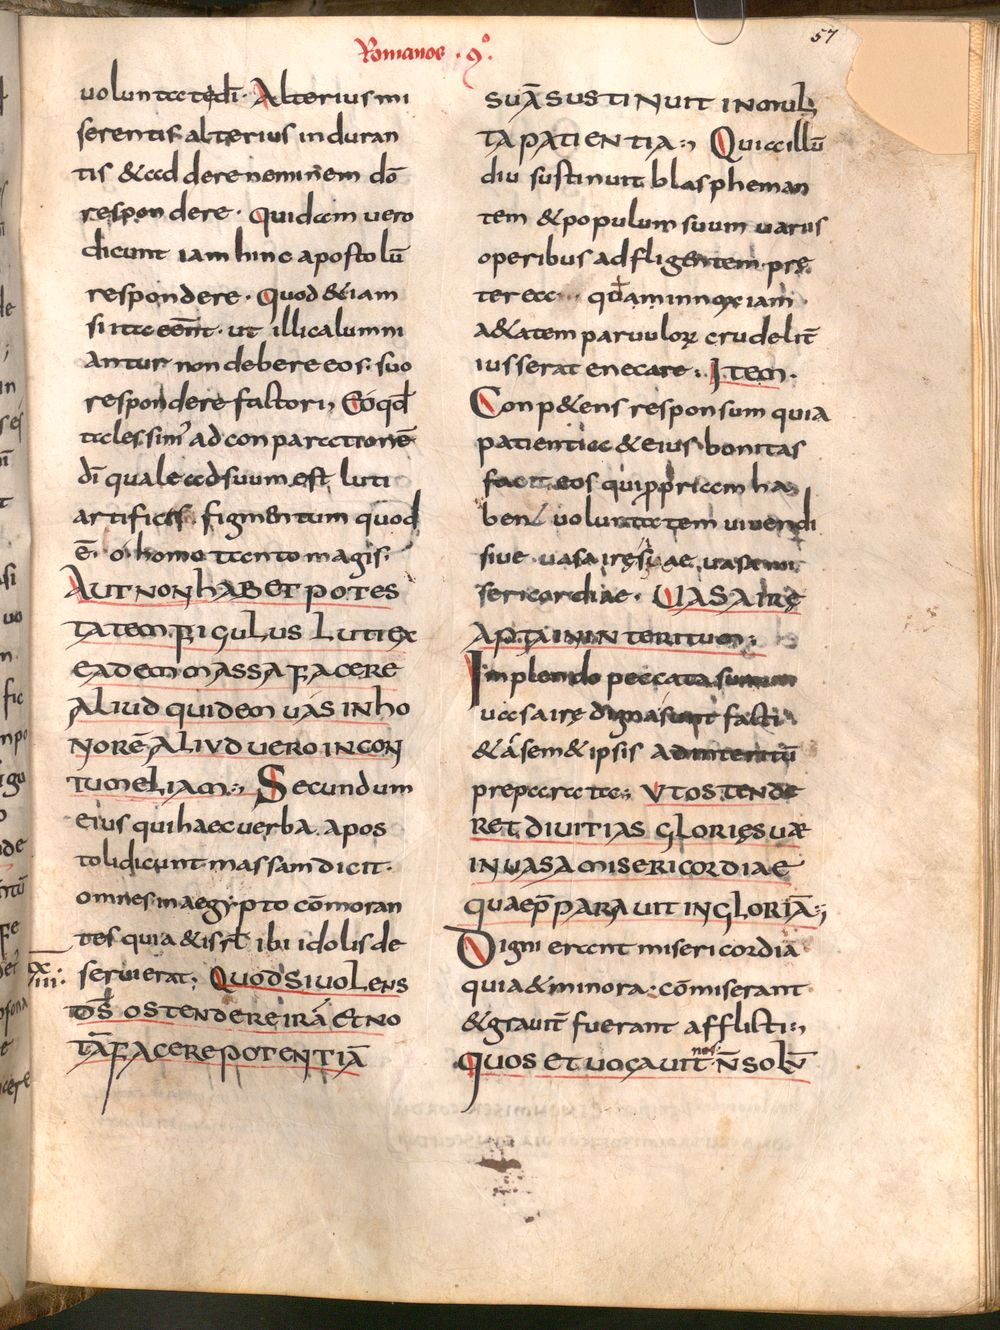 Romanos · 9º·
57
uoluntate di· Alterius mi
serentis alterius induran
tis & addere neminem dō
respondere· Quidam uero
dicunt iam hinc apostolū
respondere· Quod & iam
si ita eēnt· ut illi calumni
antur non debere eos suo
respondere factori, Eo qd
tales sim' ad conparationē
dī quale ad suum est luti
artificis figmentum quod
ē· o homo tanto magis·
AUT NON HABET POTES
TATEM FIGULUS LUTI EX
EADEM MASSA FACERE
ALIUD QUIDEM UAS IN HO
NORĒ ALIUD UERO IN CON
TUMELIAM:, Secundum
eius qui haec uerba apos
toli dicunt massam dicit·
omnes in aegypto cōmoran
tes quia & isrl ibi idolis de
seruierat; QUOD SI UOLENS
DS OSTENDERE IRĀ ET NO
TĀ FACERE POTENTIĀ
IX
III:
SUĀ SUSTINUIT IN MUL
TA PATIENTIA:, Qui & illū
diu sustinuit blaspheman
tem & populum suum uariis
operibus adfligentem pre
terea qđam innoxiam
a&atem paruulorꝝ crudelit̄
iusserat enecare· Item·
Conp&ens responsum quia
patientia & eius bonitas
facit eos qui
uoluntatem uiuendi
siue uasa ire suae uasa mi
sericordiae· UASA IRE
APTA IN INTERITUM;
Implendo peccata suum
uasa ire digna sunt facti
& a sem&ipsis ad interitū
preparata:, UT OSTENDE
RET DIUITIAS GLORIE SUAE
IN UASA MISERICORDIAE
QUAE P̄PARAUIT IN GLORIĀ:,
Digni erant misericordia
quia & minora cōmiserant
& grauit̄ fuerant afflicti:,
nos·
QUOS ET UOCAUIT N̄ SOLŪ